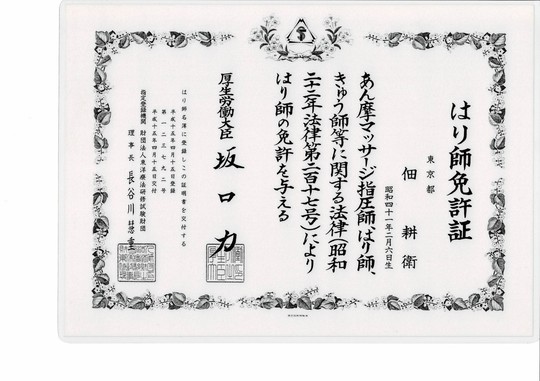 はり師免許証
東京都
佃耕衛
昭和四十一年二月六日生
あん摩マッサージ指圧師、はり師、
きゅう師等に関する法律(昭和
二十二年法律第二百十七号)により
はり師の免許を与える
厚生労働大臣 坂口力
はり師名簿に登録しこの証明書を交付する
平成十五年四月十五日登録
第一二三七九二号
平成十五年四月十五日交付
指定登録機関 財団法人東洋療法研修試験財団
理事長 長谷川慧重